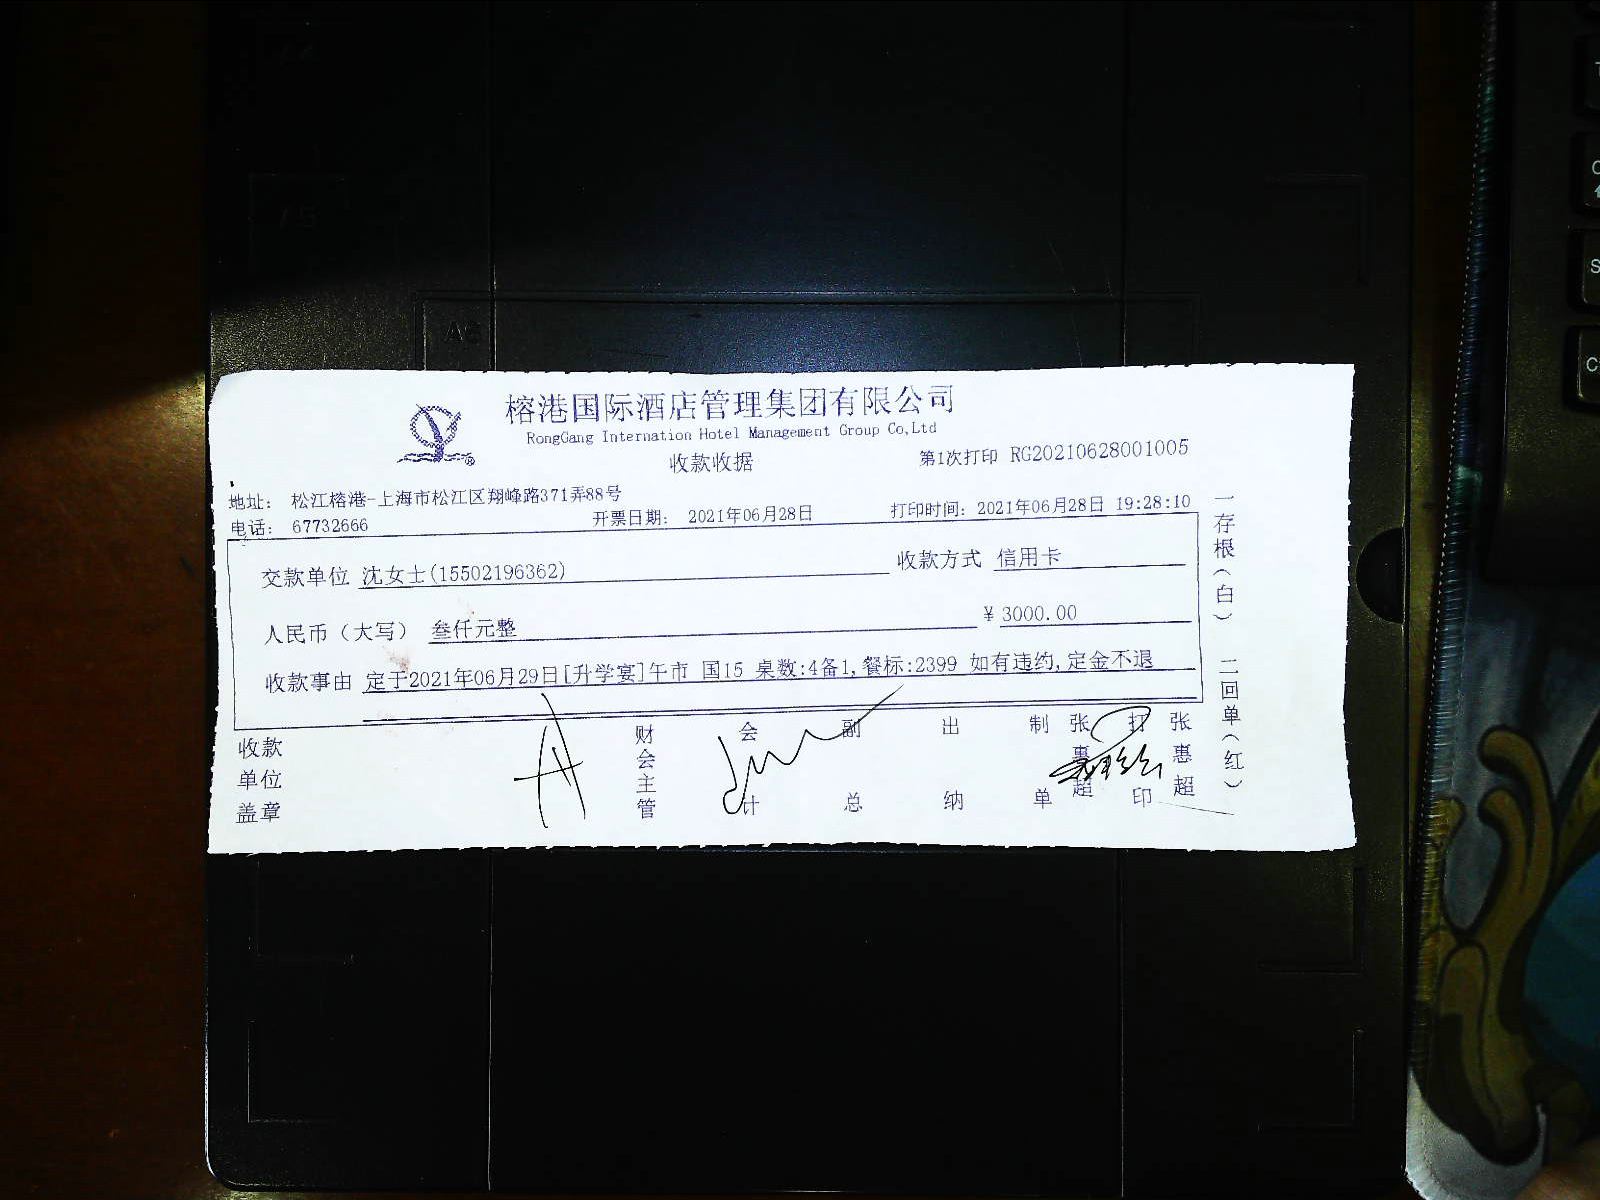 榕港国际酒店管理集团有限公司
RongGang Internation Hotel Management Group Co,Ltd
收款收据
第1次打印 RG20210628001005
地址: 松江榕港-上海市松江区翔峰路371弄88号
电话: 67732666
开票日期: 2021年06月28日
打印时间: 2021年06月28日 19:28:10
交款单位 沈女士(15502196362)
收款方式 信用卡
人民币（大写） 叁仟元整
¥ 3000.00
收款事由 定于2021年06月29日[升学宴]午市 国15 桌数:4备1,餐标:2399 如有违约,定金不退
收款单位盖章
财会主管
会计
副总
出纳
制单
张惠超
打印
张惠超
一存根(白) 二回单(红)